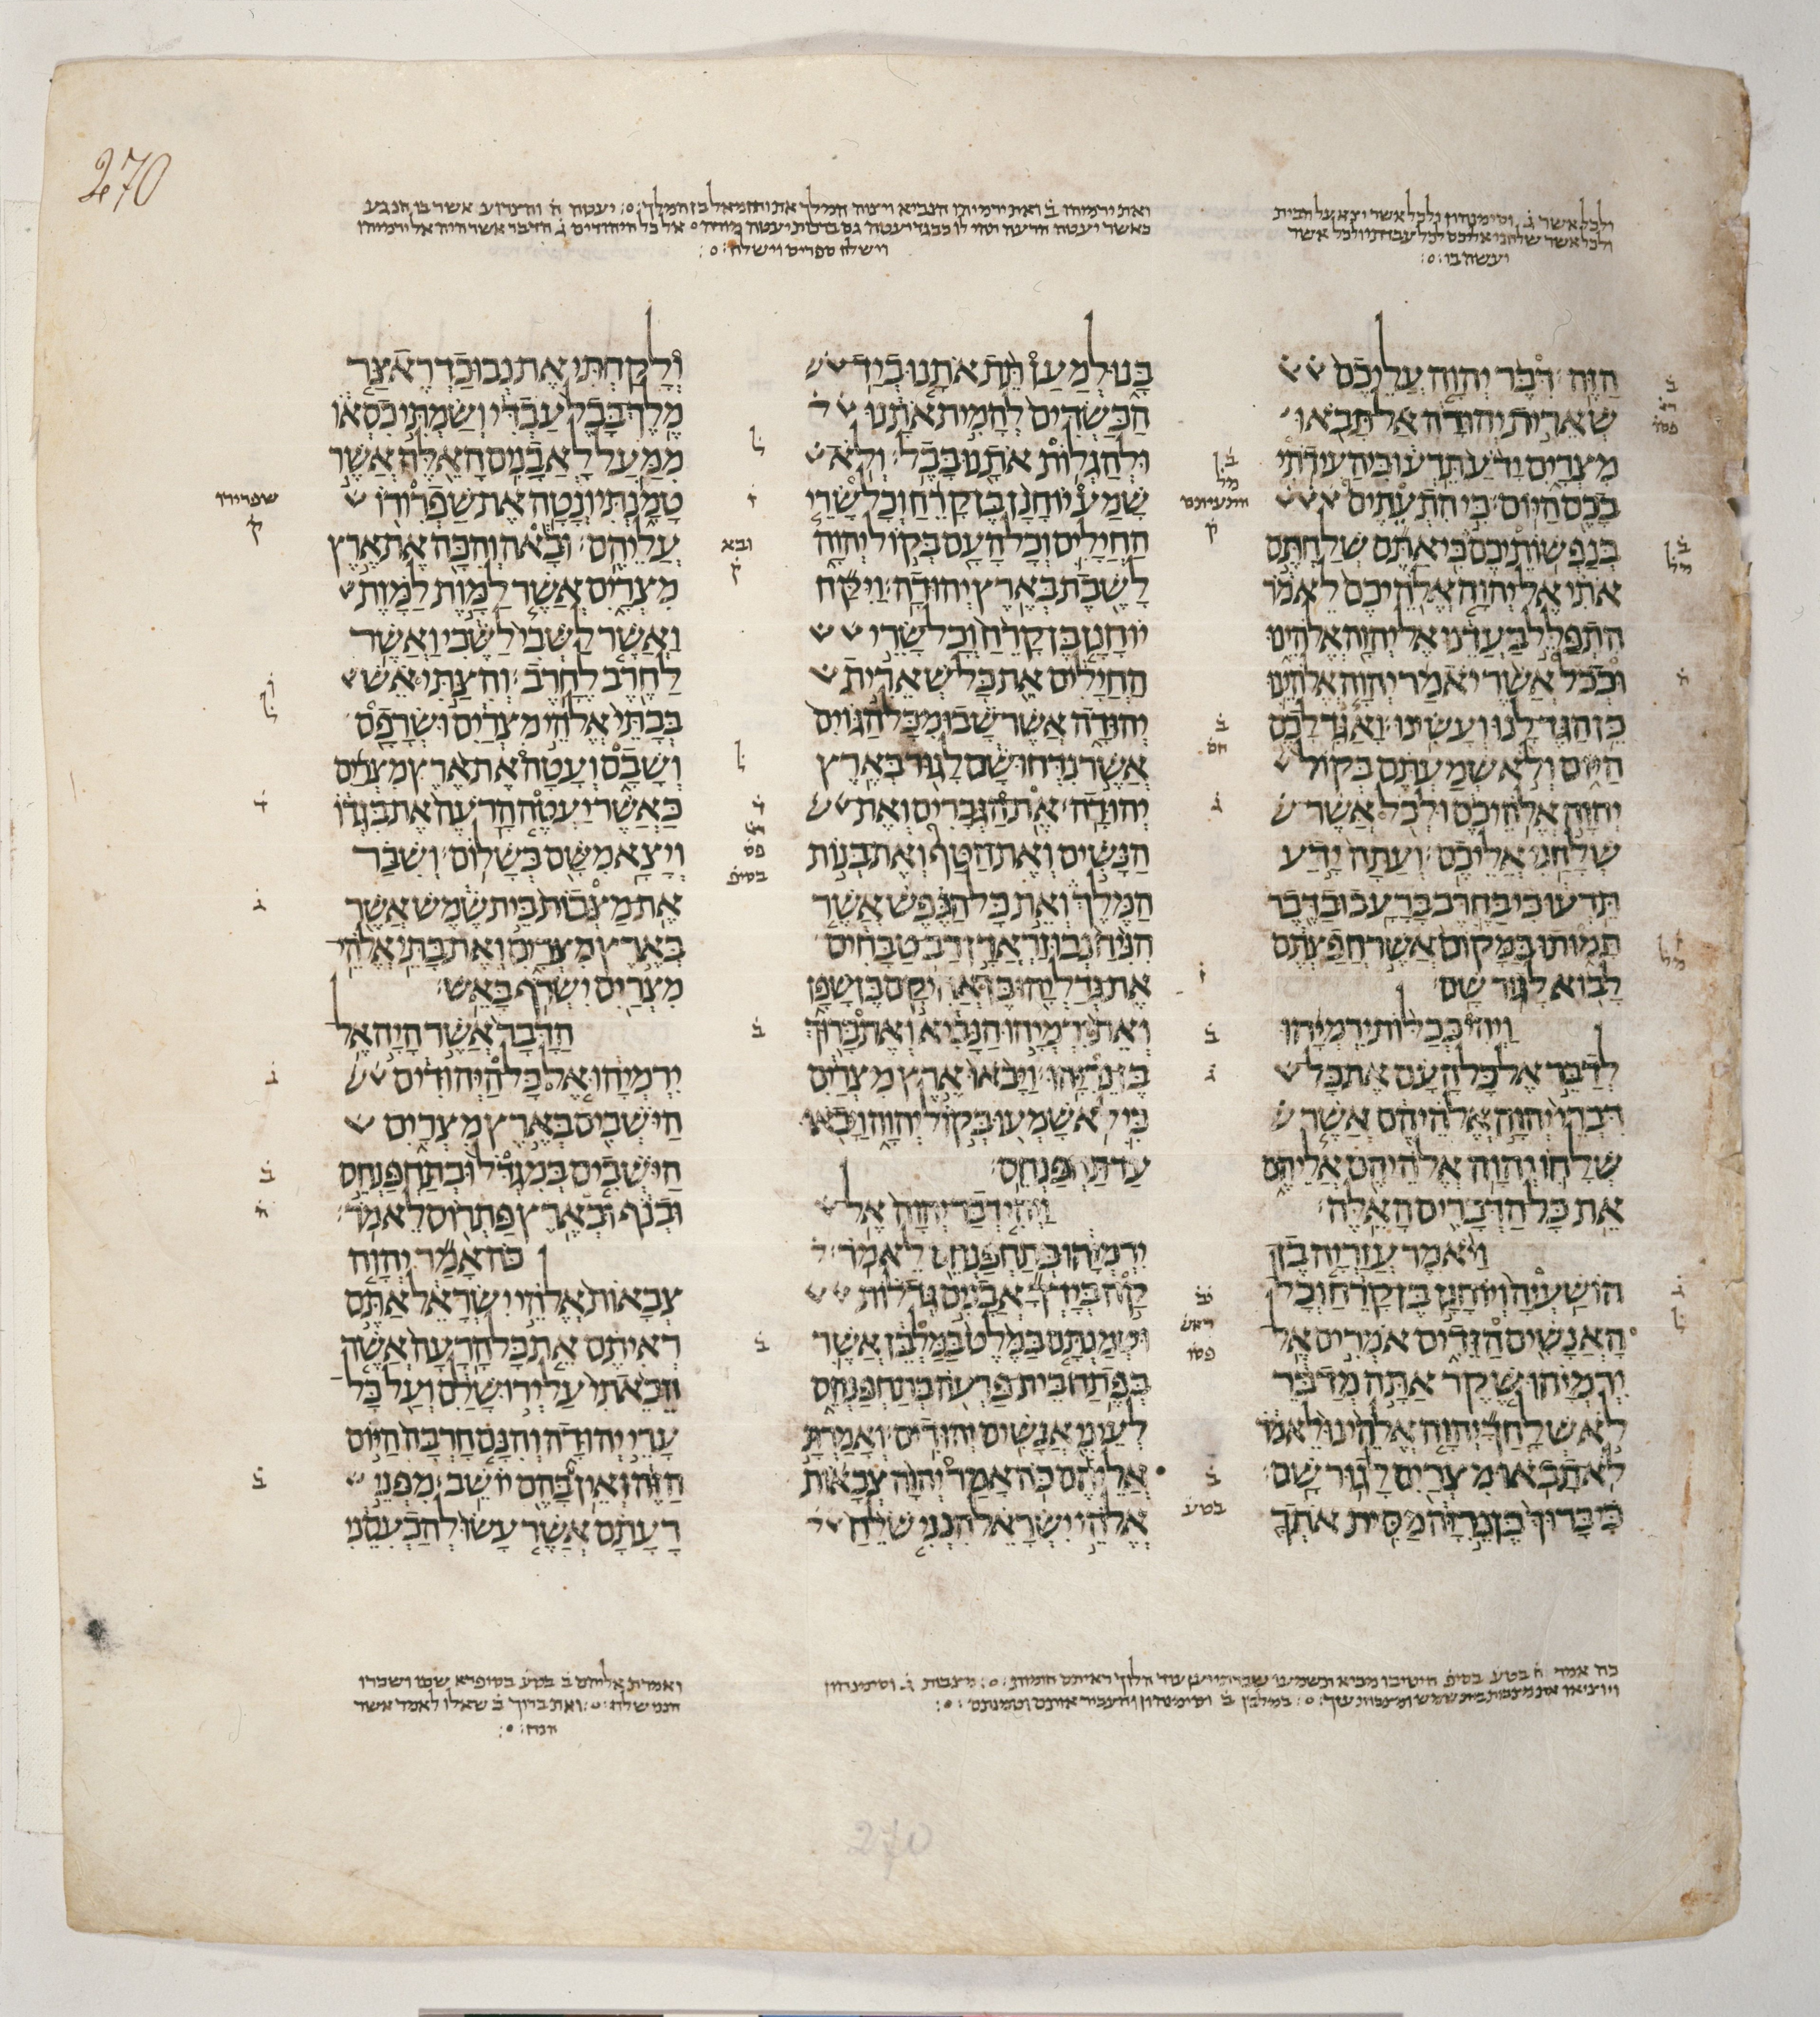 270
ולכל אשר ג וסימנהון ולכל אשר יצא על הבית
ולכל אשר שלחני אליכם לכל עבדתו ולכל אשר
יעשה בו
ואת ירמיהו ב ואת ירמיהו הנביא ויצוה המלך את ירחמאל בן המלך יעטה ה והצרוע אשר בו הנגע
כאשר יעטה הרעה תהי לו כבגד יעטה גם ברכות יעטה מורה אל כל היהודים ג הדבר אשר היה אל ירמיהו
וישלח ספרים וישלח
הזה דבר יהוה עליכם
שארית יהודה אל תבאו
מצרים ידע תדעו כי העידתי
בכם היום כי התעתים
בנפשותיכם כי אתם שלחתם
אתי אל יהוה אלהיכם לאמר
התפלל בעדנו אל יהוה אלהינו
וככל אשר יאמר יהוה אלהינו
כן הגד לנו ועשינו ואגד לכם
היום ולא שמעתם בקול
יהוה אלהיכם ולכל אשר
שלחני אליכם ועתה ידע
תדעו כי בחרב ברעב ובדבר
תמותו במקום אשר חפצתם
לבוא לגור שם
ויהי ככלות ירמיהו
לדבר אל כל העם את כל
דברי יהוה אלהיהם אשר
שלחו יהוה אלהיהם אליהם
את כל הדברים האלה
ויאמר עזריה בן
הושעיה ויוחנן בן קרח וכל
האנשים הזדים אמרים אל
ירמיהו שקר אתה מדבר
לא שלחך יהוה אלהינו לאמר
לא תבאו מצרים לגור שם
כי ברוך בן נריה מסית אתך
בנו למען תת אתנו ביד
הכשדים להמית אתנו
ולהגלות אתנו בבל ולא
שמע יוחנן בן קרח וכל שרי
החילים וכל העם בקול יהוה
לשבת בארץ יהודה ויקח
יוחנן בן קרח וכל שרי
החילים את כל שארית
יהודה אשר שבו מכל הגוים
אשר נדחו שם לגור בארץ
יהודה את הגברים ואת
הנשים ואת הטף ואת בנות
המלך ואת כל הנפש אשר
הניח נבוזראדן רב טבחים
את גדליהו בן אחיקם בן שפן
ואת ירמיהו הנביא ואת ברוך
בן נריהו ויבאו ארץ מצרים
כי לא שמעו בקול יהוה ויבאו
עד תחפנחס
ויהי דבר יהוה אל
ירמיהו בתחפנחס לאמר
קח בידך אבנים גדלות
וטמנתם במלט במלבן אשר
בפתח בית פרעה בתחפנחס
לעיני אנשים יהודים ואמרת
אליהם כה אמר יהוה צבאות
אלהי ישראל הנני שלח
ולקחתי את נבוכדראצר
מלך בבל עבדי ושמתי כסאו
ממעל לאבנים האלה אשר
טמנתי ונטה את שפרורו
עליהם ובאה והכה את ארץ
מצרים אשר למות למות
ואשר לשבי לשבי ואשר
לחרב לחרב והצתי אש
בבתי אלהי מצרים ושרפם
ושבם ועטה את ארץ מצרים
כאשר יעטה הרעה את בגדו
ויצא משם בשלום ושבר
את מצבות בית שמש אשר
בארץ מצרים ואת בתי אלהי
מצרים ישרף באש
הדבר אשר היה אל
ירמיהו אל כל היהודים
הישבים בארץ מצרים
הישבים במגדל ובתחפנחס
ובנף ובארץ פתרוס לאמר
כה אמר יהוה
צבאות אלהי ישראל אתם
ראיתם את כל הרעה אשר
הבאתי על ירושלם ועל כל
ערי יהודה והנם חרבה היום
הזה ואין בהם יושב מפני
רעתם אשר עשו להכעסני
270